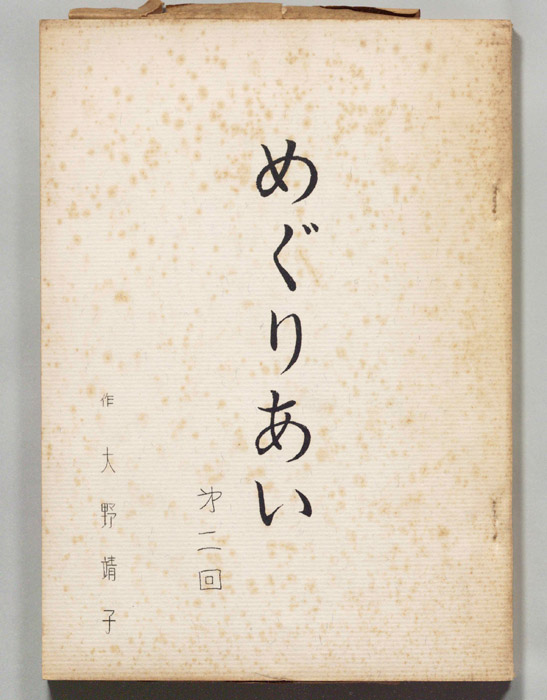 めぐりあい
第二回
作 大野靖子